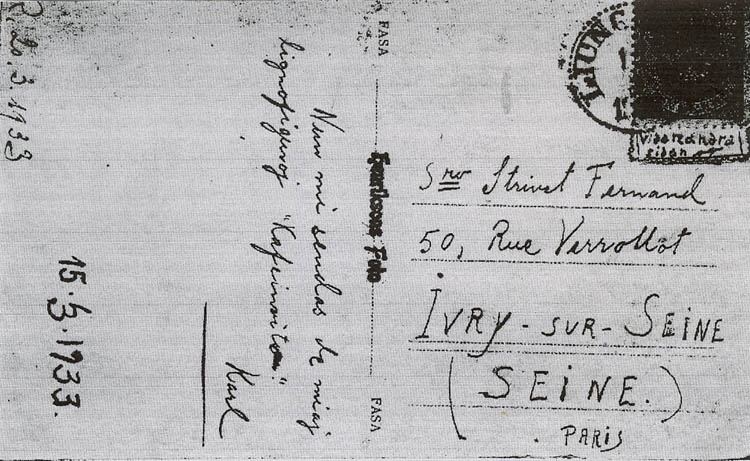 R. 20.3.1933
15.3.1933.
Nun mi sendas de miaj
lignofiguroj "Kafeinvito".
Karl
FASA
Foto
FASA
LJUNG
sidan
Sro Strivet Fernand
50, Rue Verrollot
IVRY-SUR-SEINE
(SEINE.)
PARIS